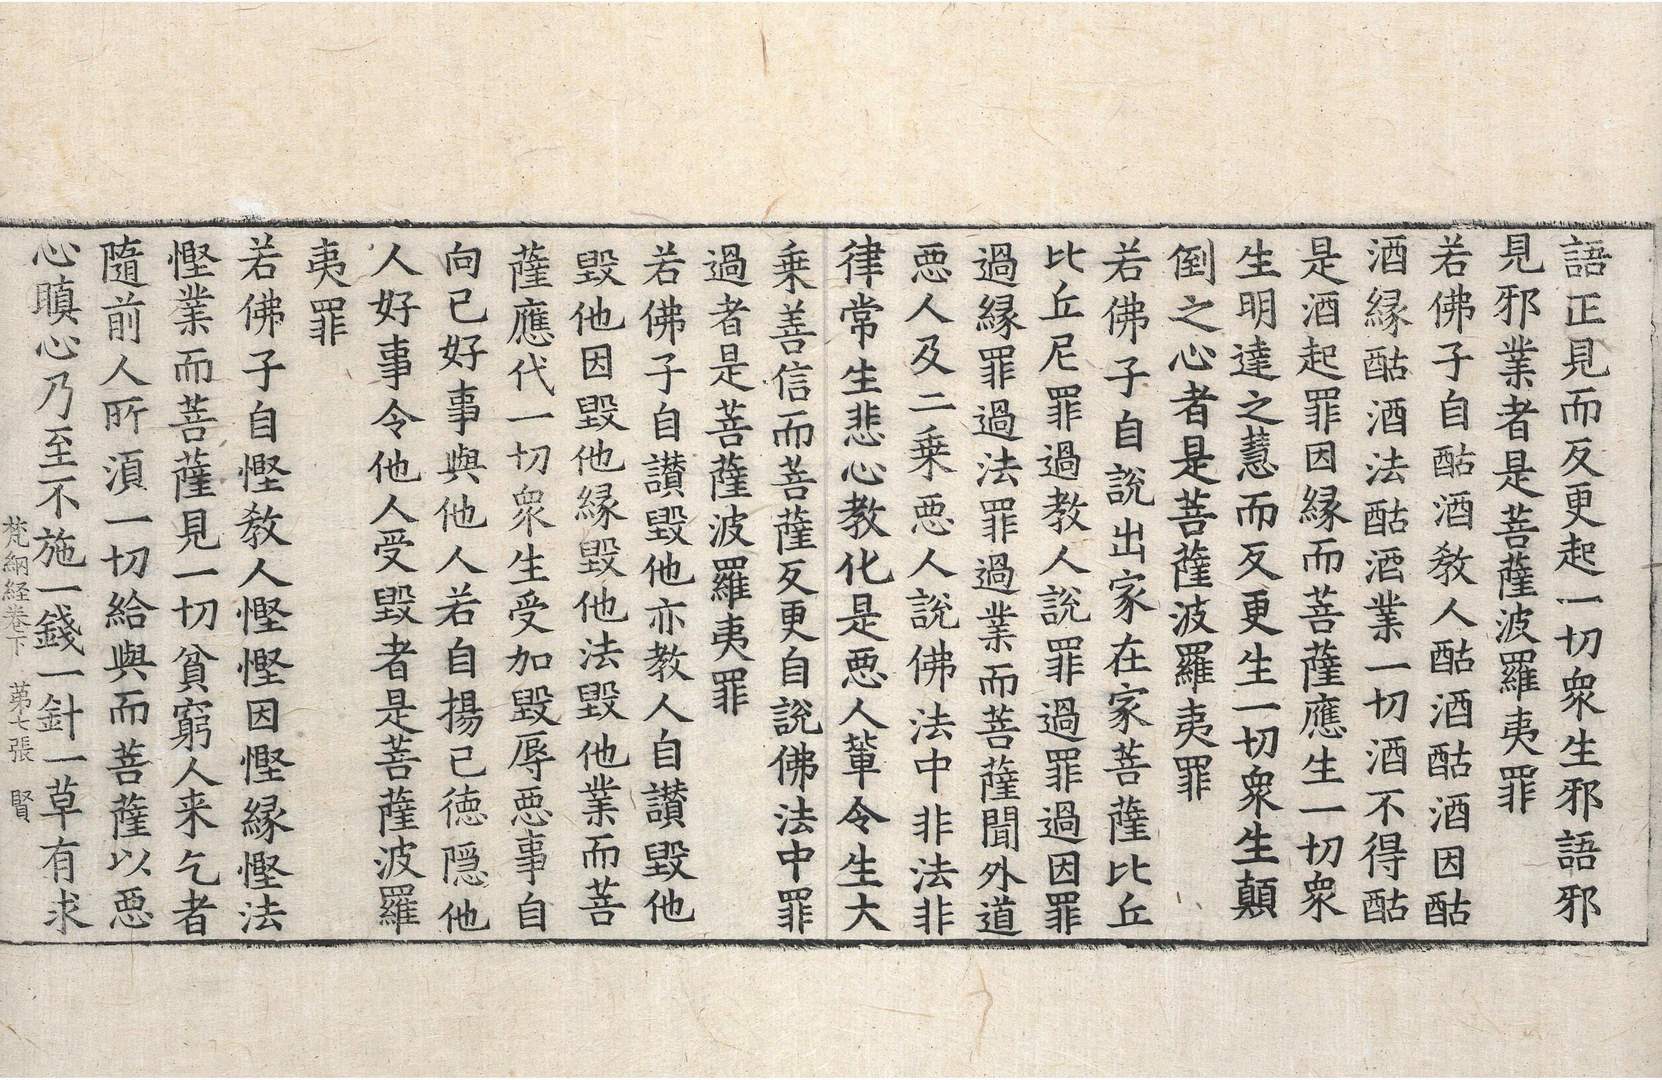 語正見而反更起一切衆生邪語邪
見邪業者是菩薩波羅夷罪
若佛子自酤酒教人酤酒酤酒因酤
酒縁酤酒法酤酒業一切酒不得酤
是酒起罪因縁而菩薩應生一切衆
生明達之慧而反更生一切衆生顛
倒之心者是菩薩波羅夷罪
若佛子自說出家在家菩薩比丘
比丘尼罪過教人說罪過罪過因罪
過縁罪過法罪過業而菩薩聞外道
惡人及二乗惡人說佛法中非法非
律常生悲心教化是惡人軰令生大
乗善信而菩薩反更自說佛法中罪
過者是菩薩波羅夷罪
若佛子自讃毀他亦教人自讃毀他
毀他因毀他縁毀他法毀他業而菩
薩應代一切衆生受加毀辱惡事自
向已好事與他人若自揚已德隱他
人好事令他人受毀者是菩薩波羅
夷罪
若佛子自慳教人慳慳因慳縁慳法
慳業而菩薩見一切貧窮人来乞者
隨前人所湏一切給與而菩薩以惡
心瞋心乃至不施一錢一針一草有求
梵網経卷下 第七張 賢